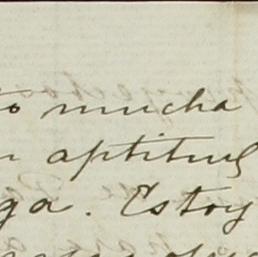 to mucha
n aptitud
ga. Estoy